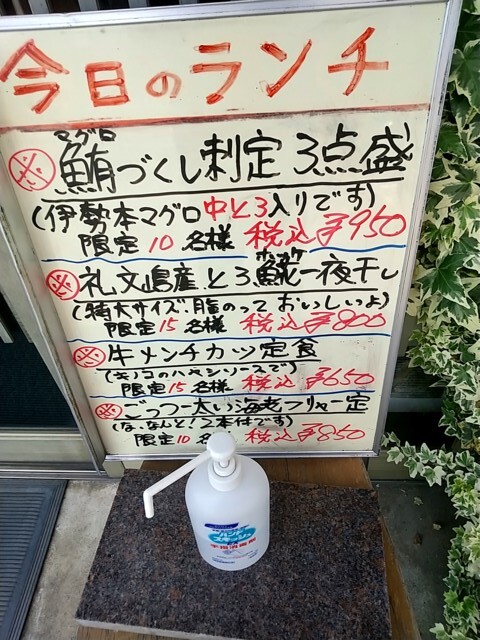 今日のランチ
マグロ
※ 鮪づくし刺定 3点盛
(伊勢本マグロ中とろ入りです)
限定10名様 税込¥950
ホッケ
※ 礼文島産、とろ𩸽一夜干し
(特大サイズ、脂のっておいしいよ)
限定15名様 税込¥800
※ 牛メンチカツ定食
(キノコのハヤシソースで)
限定15名様 税込¥650
※ ごっつー太い海老フリャー定
(な、なんと!2本付です)
限定10名 税込¥850
ハンド
スキッシュ
手指消毒剤